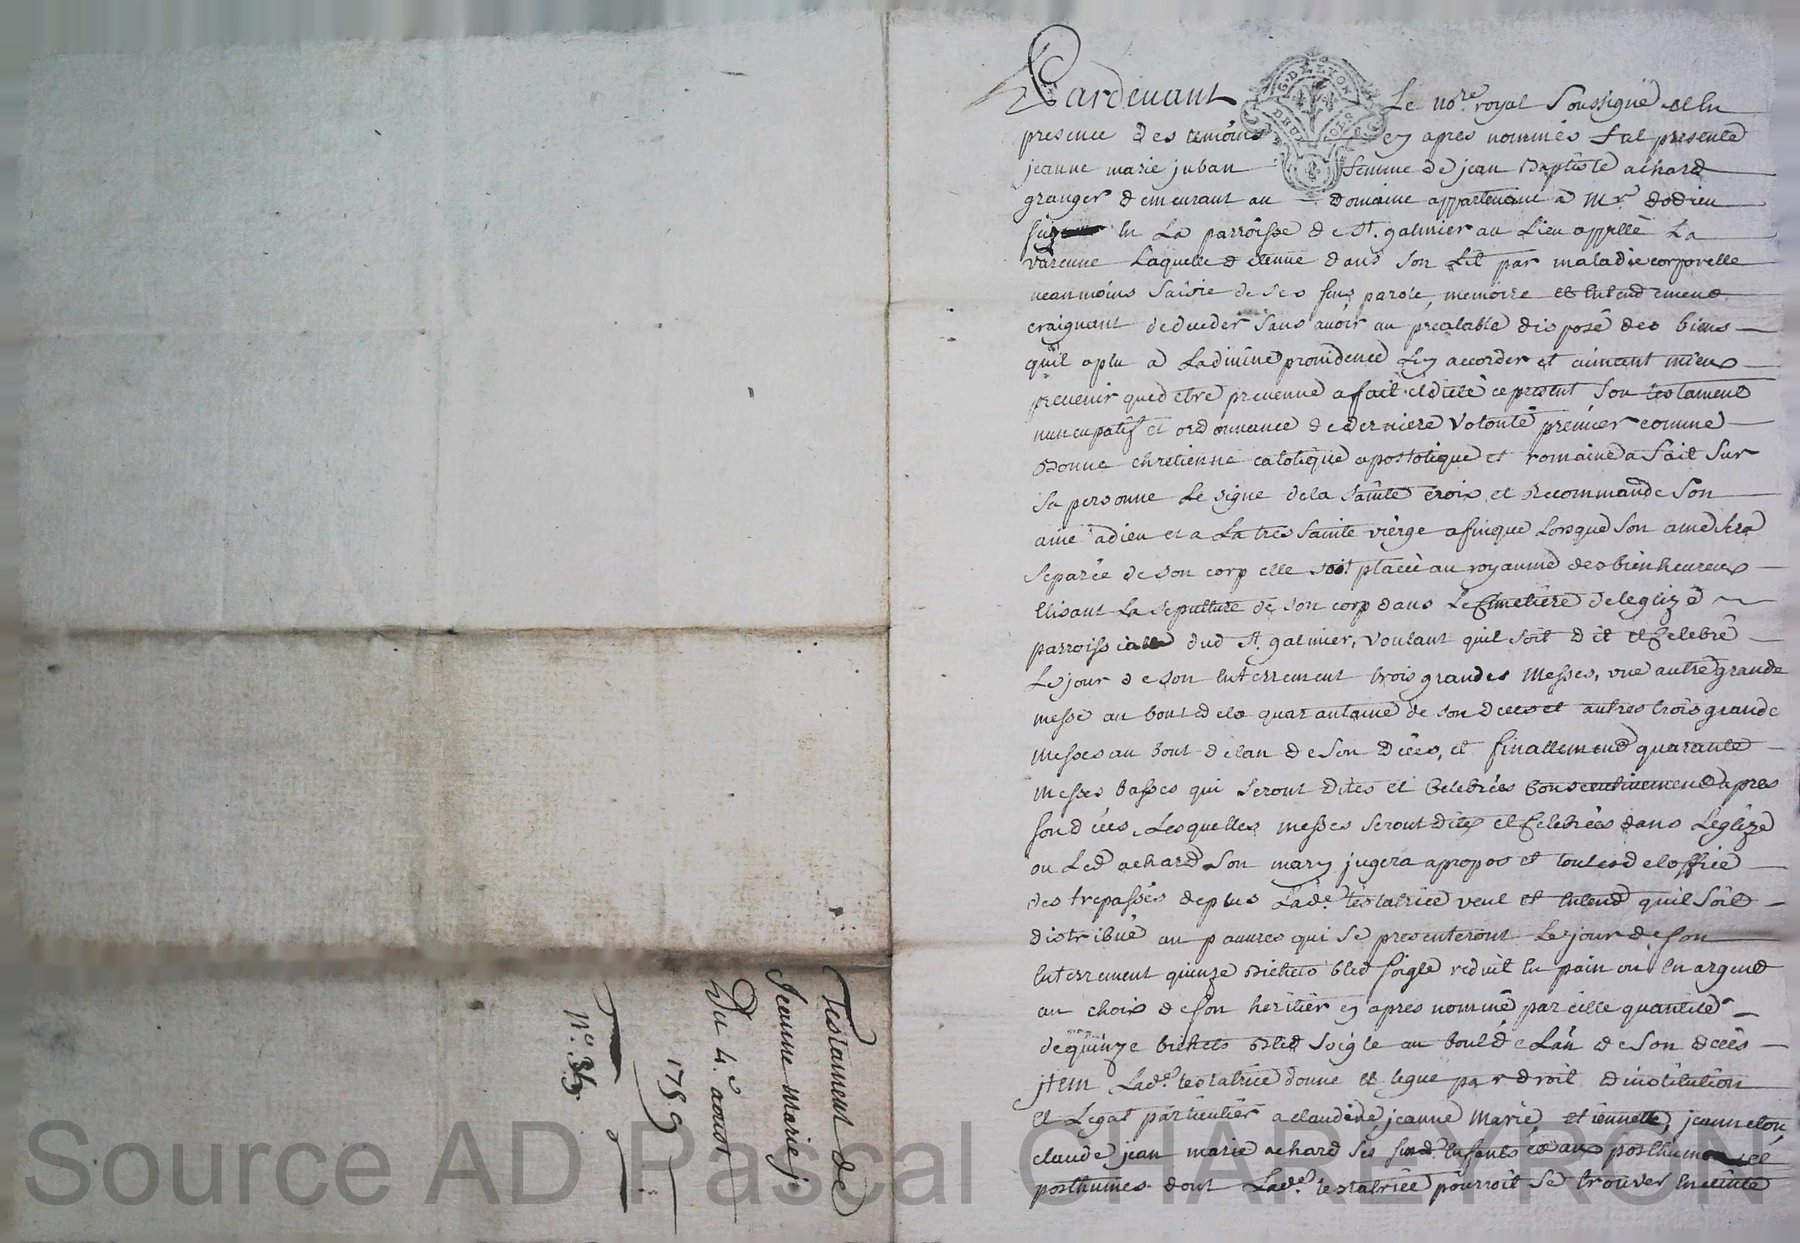 Pardevant Le nore. royal Soussigné et En
presence des temoins cy apres nommés fut presente
jeanne marie juban femme de jean Baptiste achard
granger demeurant au domaine appartenant a Mr. dodieu
En La parroisse de St. galmier au Lieu appellé La
varenne Laquelle detenue dans son Lit par maladie corporelle
neanmoins saisie de ses sens, parole, memoire et Entendement
craignant deceder sans avoir au prealable disposé des biens
quil a plu a Ladivine providence Luy accorder et aimant mieux
prevenir que detre prevenue a fait et dicté ce present son testament
nuncupatif et ordonnance de derniere volonté premier comme
Bonne chretienne catolique apostolique et romaine a fait sur
sa personne Le signe dela sainte croix et recommande son
ame adieu et a La tres sainte vierge afinque Lorsque son ame sera
separée de son corp elle soit placée au royaume des bienheureux
Elisant La sepulture de son corp dans Le Cimetiere deleglize
parroissiale dud St. galmier, voulant quil soit dit et Celebré
Le jour de son Enterrement trois grandes Messes, une autre grande
messe au bout dela quarantaine de son decès et autres trois grande
Messes au bout delan de son decès, et finallement quarante
Messes basses qui seront dites et Celebrées consecutivement apres
son decès, Lesquelles messes seront dites et Celebrées dans Leglize
ou Led achard son mary jugera apropos et toutes de loffice
des trepassés deplus Lade. testatrice veut et Entend quil soit
distribué au pauvres qui se presenteront Le jour de son
Enterrement quinze Bichets bled soigle reduit En pain ou En argent
au choix de son heritier cy apres nommé pareille quantité
de quinze bichets Bled soigle au bout de Lan de son decès
jtem Lade. testatrice donne et legue par droit dinstitution
et Legat particulier a claudine, jeanne Marie, etiennette, jeanneton,
claude jean marie achard ses Enfants et aux posthume et
posthumes dont Lade. testatrice pourroit se trouver Enceinte
Testament de
Jeanne marie j.
Du 4.e aoust
1789
no. 35
Source AD Pascal CHAREYRON